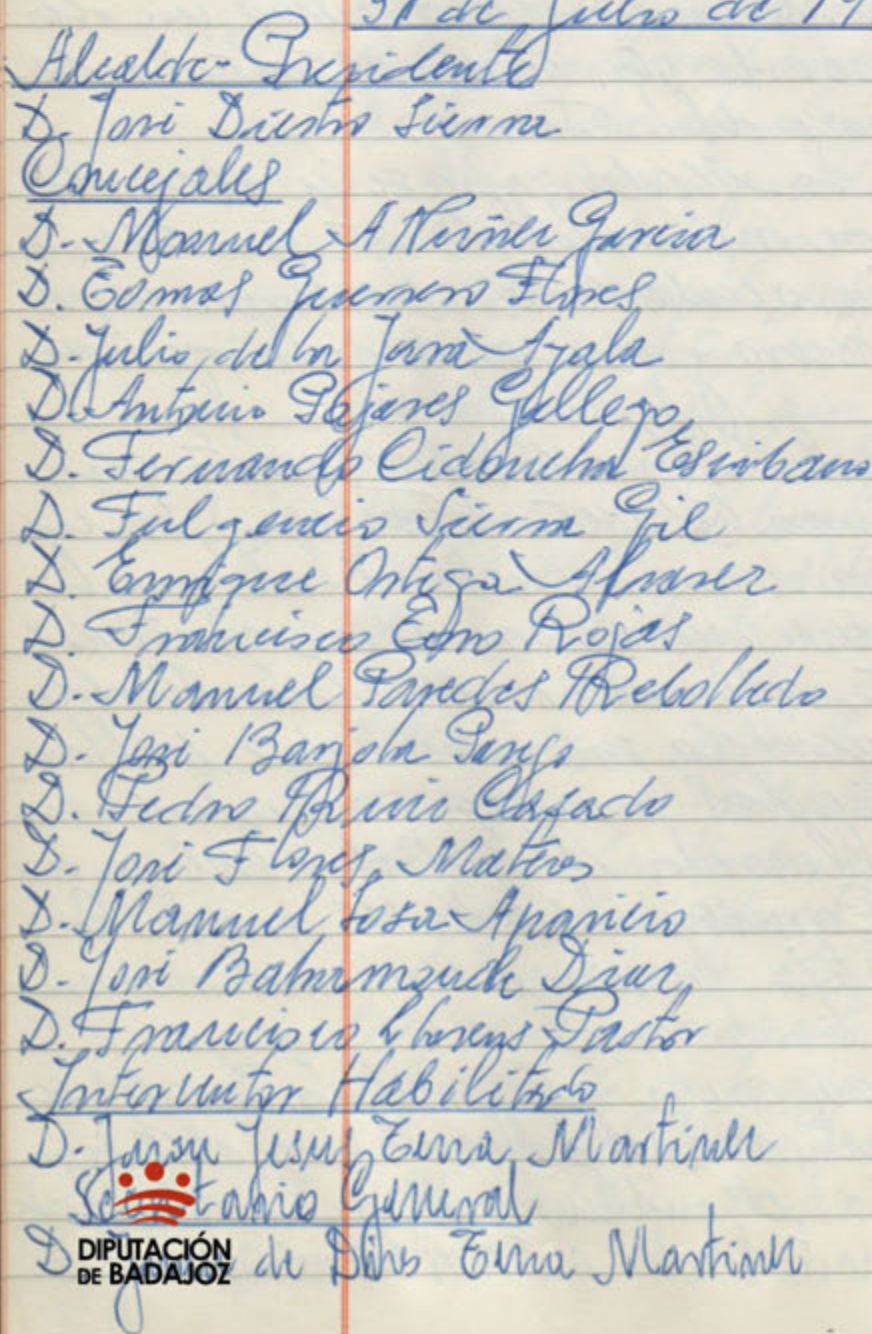 31 de Julio de 19
Alcalde-Presidente
D. José Diestro Sierra
Concejales
D. Manuel A Núñez García
D. Tomas Guerrero Flores
D. Julio de la Jara Ayala
D. Antonio Pajares Gallego
D. Fernando Cidoncha Escribano
D. Fulgencio Sierra Gil
D. Enrique Ortega Alvarez
D. Francisco Rojas
D. Manuel Paredes Rebolledo
D. José Barjola
D. Pedro Ruiz Casado
D. José Flores Mateos
D. Manuel Sosa Aparicio
D. José Bahamonde Diaz
D. Francisco Llorens Pastor
Interventor Habilitado
D. Juan Jesus Tena Martinez
Secretario General
D. Juan de Dios Tena Martinez
DIPUTACIÓN
DE BADAJOZ